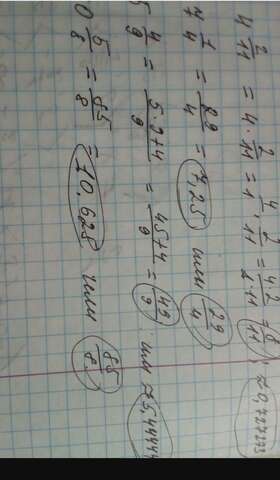 4 2/11 = 4 · 2/11 = 4/1 · 2/11 = 4·2/1·11 = 8/11 ≈ 0,727272
7 1/4 = 29/4 = 7,25 или 29/4
5 4/9 = 5·9+4/9 = 45+4/9 = 49/9 или ≈ 5,44444
0 5/8 = 85/8 = 10.625 или 85/8